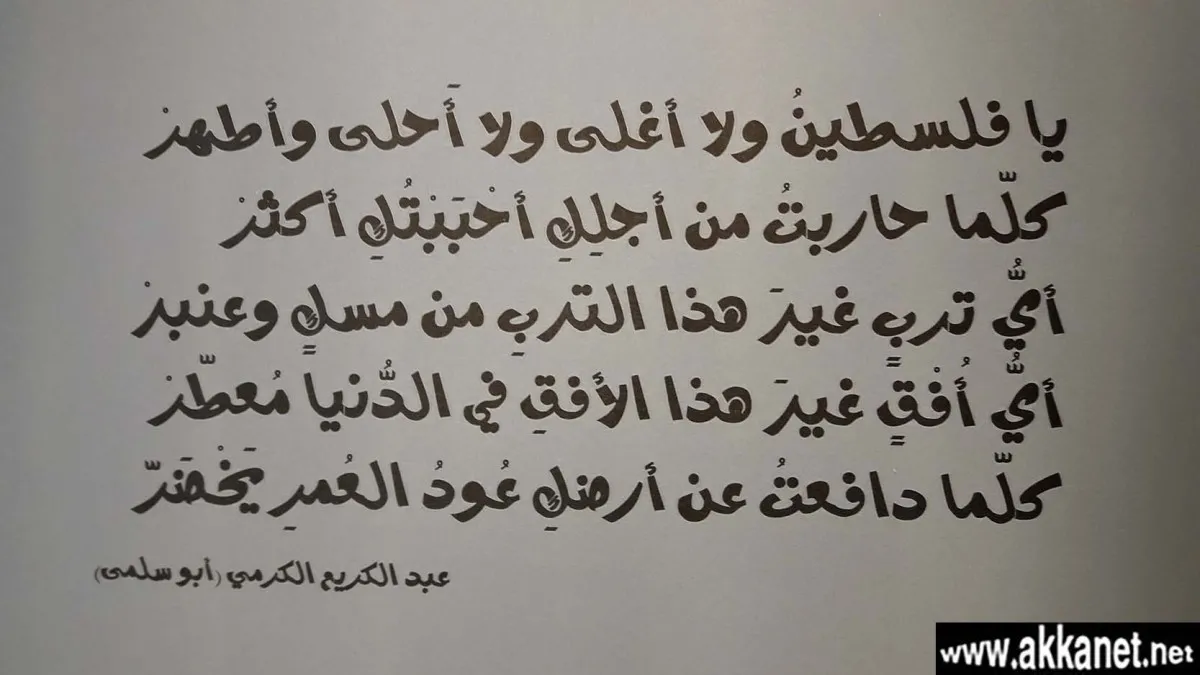 يا فلسطينُ ولا أغلى ولا أَحلى وأطهرْ
كلّما حاربتُ من أجلِكِ أحْبَبْتُكِ أكثرْ
أيُّ تربٍ غيرَ هذا التربِ من مسكٍ وعنبرْ
أيُّ أُفْقٍ غيرَ هذا الأفقِ في الدُّنيا مُعطّرْ
كلّما دافعتُ عن أرضكِ عُودُ العُمرِ يَخْضَرّ
عبد الكريم الكرمي (أبو سلمى)
www.akkanet.net